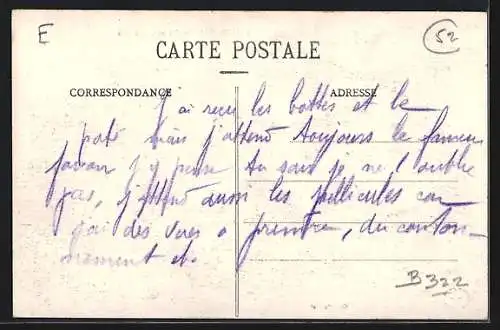 E
52
CARTE POSTALE
CORRESPONDANCE
ADRESSE
J'ai reçu les bottes et le
paté mais j'attend toujours le fameux
savon j'y pense tu sais je ne l'oublie
pas, j'attend aussi les pellicules car
j'ai des vues a prendre, du canton-
nement et.
B322